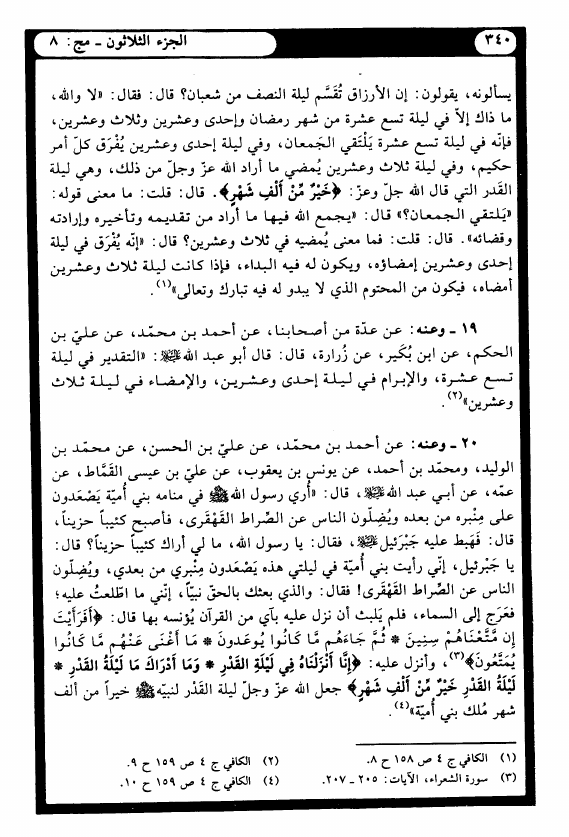 ٣٤٠
الجزء الثلاثون ـ مج: ٨
يسألونه، يقولون: إن الأرزاق تُقَسَّم ليلة النصف من شعبان؟ قال: فقال: «لا والله،
ما ذاك إلاّ في ليلة تسع عشرة من شهر رمضان وإحدى وعشرين وثلاث وعشرين،
فإنّه في ليلة تسع عشرة يَلْتَقي الجَمعان، وفي ليلة إحدى وعشرين يُفْرَق كلّ أمر
حكيم، وفي ليلة ثلاث وعشرين يُمضي ما أراد الله عزّ وجلّ من ذلك، وهي ليلة
القَدر التي قال الله جلّ وعزّ: ﴿خَيْرٌ مِّنْ أَلْفِ شَهْرٍ﴾. قال: قلت: ما معنى قوله:
«يَـلـتـقي الـجـمعان؟» قال: «يـجـمع الله فيـها ما أراد مـن تقديـمه وتأخيره وإرادته
وقضائه». قال: قلت: فما معنى يُمضيه في ثلاث وعشرين؟ قال: «إنّه يُفْرَق في ليلة
إحدى وعشرين إمضاؤه، ويكون له فيه البداء، فإذا كانت ليلة ثلاث وعشرين
أمضاه، فيكون من المحتوم الذي لا يبدو له فيه تبارك وتعالى»(١).
١٩ ـ وعنه: عن عدّة من أصحابنا، عن أحمد بن محمّد، عن عليّ بن
الحكم، عن ابن بُكَير، عن زُرارة، قال: قال أبو عبد الله ﷺ: «التقدير في ليلة
تسع عشـرة، والإبرام في ليلـة إحدى وعشرين، والإمضاء في ليلـة ثلاث
وعشرين»(٢).
٢٠ ـ وعنه: عن أحمد بن محمّد، عن عليّ بن الحسن، عن محمّد بن
الوليد، ومحمّد بن أحمد، عن يونس بن يعقوب، عن عليّ بن عيسى القَمَّاط، عن
عمّه، عن أبـي عبد الله ﷺ، قال: «أُري رسول الله ﷺ في منامه بني أُميّة يَصْعَدون
على مِنْبره من بعده ويُضِلّون الناس عن الصِّراط القَهْقَرى، فأصبح كئيباً حزيناً،
قال: فهَبط عليه جَبْرَئيل ﷺ، فقال: يا رسول الله، ما لي أراك كئيباً حزيناً؟ قال:
يا جَبرئيل، إنّي رأيت بني أُميّة في ليلتي هذه يَصْعَدون مِنْبري من بعدي، ويُضِلّون
الناس عن الصِّراط القَهْقَرى! فقال: والذي بعثك بالحقّ نبيّاً، إنّني ما اطّلعتُ عليه؛
فعَرَج إلى السماء، فلم يَلبث أن نزل عليه بآي من القرآن يُؤنسه بها قال: ﴿أَفَرَأَيْتَ
إِن مَّتَّعْنَاهُمْ سِنِينَ * ثُمَّ جَاءَهُم مَّا كَانُوا يُوعَدُونَ * مَا أَغْنَى عَنْهُم مَّا كَانُوا
يُمَتَّعُونَ﴾(٣)، وأنزل عليه: ﴿إِنَّا أَنْزَلْنَاهُ فِي لَيْلَةِ القَدْرِ * وَمَا أَدْرَاكَ مَا لَيْلَةُ القَدْرِ *
لَيْلَةُ القَدْرِ خَيْرٌ مِّنْ أَلْفِ شَهْرٍ﴾ جعل الله عزّ وجلّ ليلة القَدْر لنبيّه ﷺ خيراً من ألف
شهر مُلك بني أُميّة»(٤).
(١) الكافي ج ٤ ص ١٥٨ ح ٨.
(٢) الكافي ج ٤ ص ١٥٩ ح ٩.
(٣) سورة الشعراء، الآيات: ٢٠٥ ـ ٢٠٧.
(٤) الكافي ج ٤ ص ١٥٩ ح ١٠.